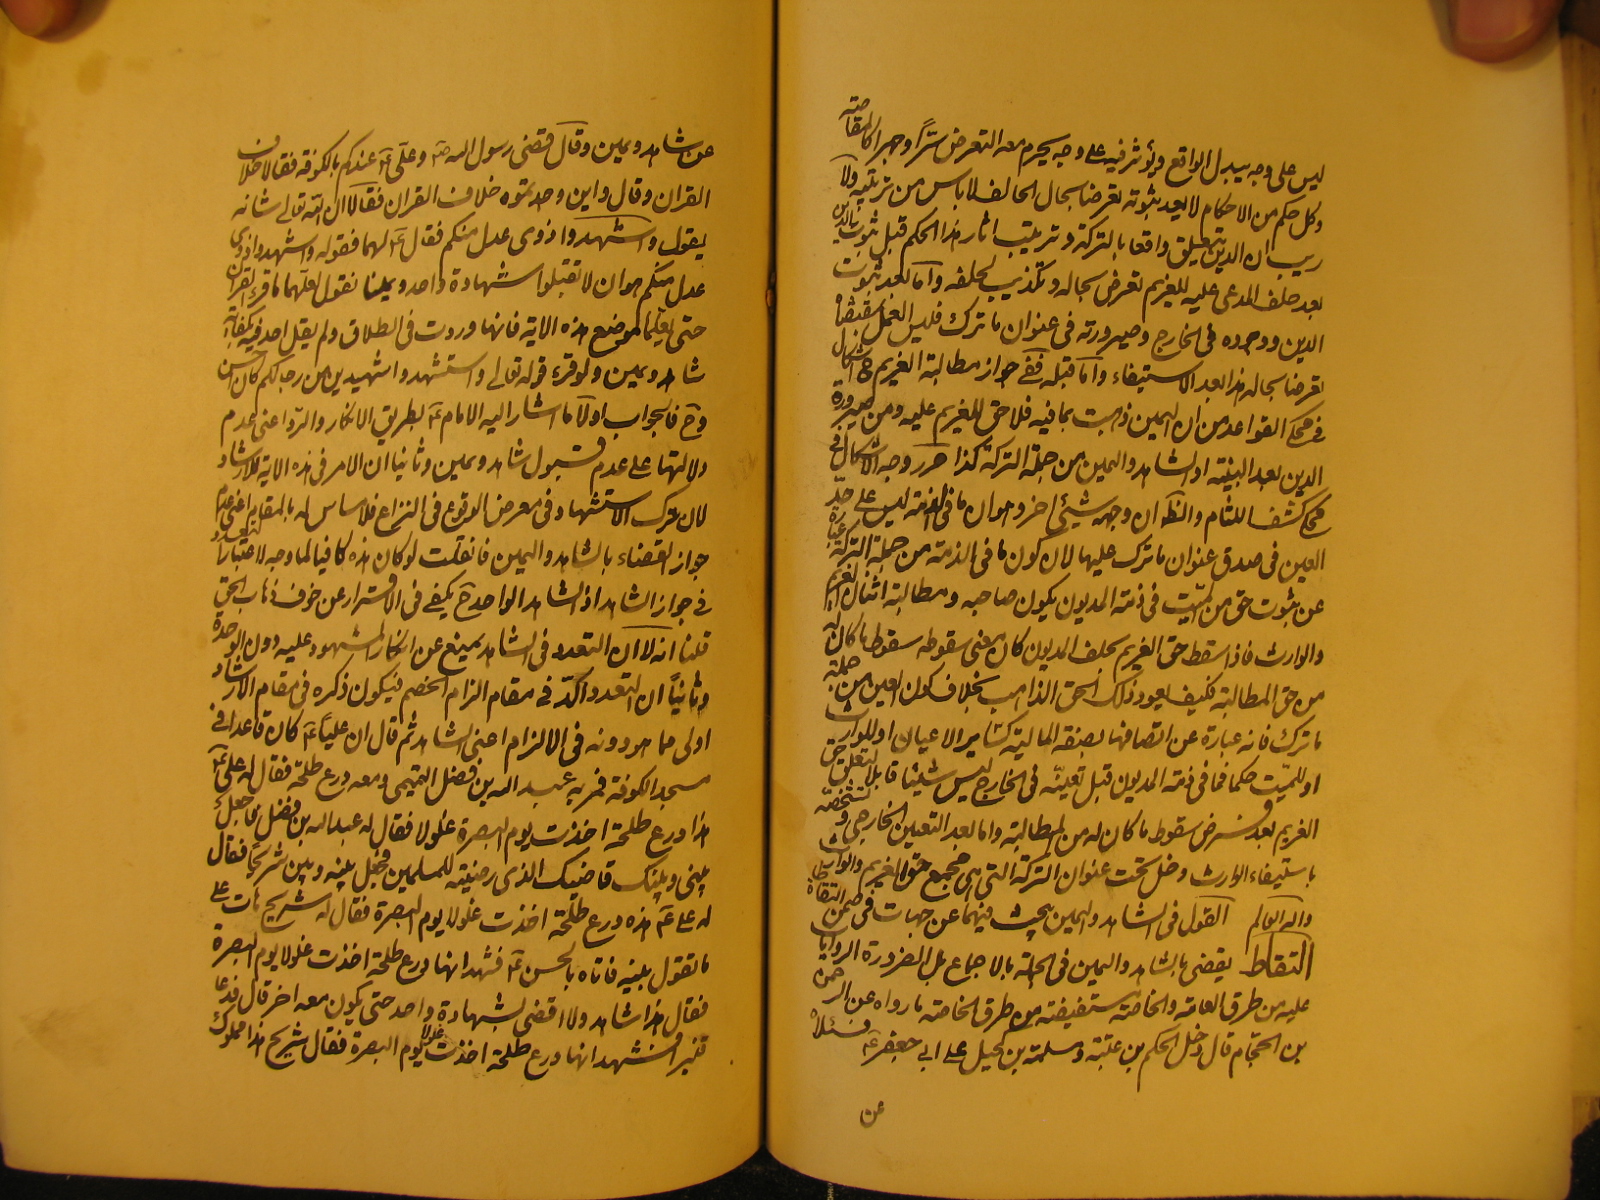 ليس على وجه يبدل الواقع ويؤثر فيه على وجه يحرم معه التعرض سرّاً وجبراً كالمقاصة
وكل حكم من الاحكام لا يعد ثبوته تعرضا بحال الحالف لا باس من ترتبه ولا
ريب ان الدين يتعلق واقعا بالتركة وترتيب اثار هذا الحكم قبل ثبوت الدين
بعد حلف المدعى عليه للغريم تعرض بحاله وتكذيب لحلفه واما بعد ثبوت
الدين ووجوده فى الخارج وصيرورته فى عنوان ما ترك فليس العمل بمقتضاه
تعرضا بحاله هذا بعد الاستيفاء واما قبله ففى جواز مطالبة الغريم ح اشكال
فى محكى القواعد من ان اليمين ذهبت بما فيه فلا حق للغريم عليه ومن صيرورة
الدين بعد البينة او الشاهد واليمين من جملة التركة كذا حرر وجه الاشكال فى
محكى كشف اللثام والظ ان وجهه شيئى اخر وهو ان ما فى الذمة ليس على حدّ
العين فى صدق عنوان ما ترك عليها لان كون ما فى الذمة من جملة التركة عبارة
عن ثبوت حق من الميّت فى ذمة المديون يكون صاحبه ومطالبة اثنان الغريم
والوارث فاذا سقط حق الغريم بحلف المديون كان معنى سقوطه سقوط ما كان له
من حق المطالبة فكيف يعود ذلك الحق الذاهب بخلاف كون العين من جملة
ما ترك فانه عبارة عن اتصافها بصفة المالية كسائر الاعيان او للوارث
او للميّت حكما فما فى ذمة المديون قبل تعيّنه فى الخارج ليس شيئا قابلا لتعلق حق
الغريم بعد فرض سقوط ما كان له من المطالبة واما بعد التعين الخارجى وتشخصه
باستيفاء الوارث دخل تحت عنوان التركة التى هى مجمع حق الغريم والوارث
والله العالم القول فى الشاهد واليمين يبحث فيهما عن جهات فى ضمن التقاط
التقاط يقضى بالشاهد واليمين فى الجملة بالاجماع بل الضرورة الروايات
عليه من طرق العامة والخاصة مستفيضة من طرق الخاصة ما رواه عن الرحمن
بن الحجاج قال دخل الحكم بن عتبة وسلمة بن كهيل على ابى جعفر ع فسئلاه
عن
عن شاهد ويمين وقال قضى رسول الله ص وعلى ع عندكم بالكوفة فقالا خلاف
القران وقال واين وجدتموه خلاف القران فقالا ان الله تعالى شانه
يقول واشهدوا ذوى عدل منكم فقال ع لهما فقوله واشهدوا ذوى
عدل منكم هو ان لا تقبلوا شهادة واحد ويمينا نقول لعلهما ما قرء القران
حتى يعلما موضع هذه الاية فانها وردت فى الطلاق ولم يقل احد فيه بكفاية
شاهد ويمين ولو قرء قوله تعالى واستشهدوا شهيدين من رجالكم كان احسن
وح فالجواب اولا ما اشار اليه الامام ع بطريق الانكار والرد اعنى عدم
دلالتها على عدم قبول شاهد ويمين وثانيا ان الامر فى هذه الاية للارشاد
لان ترك الاستشهاد فى معرض الوقوع فى النزاع فلا مساس له بالمقام اعنى عدم
جواز القضاء بالشاهد واليمين فان قلت لو كان هذه كافيا لما وجه لاعتبار التعدد
فى جواز الشاهد اذ الشاهد الواحد ح يكفى فى الاستقرار عن خوف ذهاب الحق
قلنا انه لا ان التعدد فى الشاهد يمنع عن انكار المشهود عليه دون الوحدة
وثانياً ان التعدد اكد فى مقام الزام الخصم فيكون ذكره فى مقام الارشاد
اولى مما هو دونه فى الالزام اعنى الشاهد ثم قال ان علياً ع كان قاعدا فى
مسجد الكوفة فمر به عبد الله بن فضل التميمى ومعه درع طلحة فقال له على ع
هذا درع طلحة اخذت يوم البصرة غلولا فقال له عبد الله بن فضل فاجعل
بينى وبينك قاضيك الذى رضيته للمسلمين فجعل بينه وبين شريحا فقال
له على ع هذه درع طلحة اخذت غلولا يوم البصرة فقال له شريح هات على
ما تقول بينة فاتاه بالحسن ع فشهد انها درع طلحة اخذت غلولا يوم البصرة
فقال هذا شاهد ولا اقضى بشهادة واحد حتى يكون معه اخر قال فدعا
قنبرا فشهد انها درع طلحة اخذت غلولا يوم البصرة فقال شريح هذا مملوك